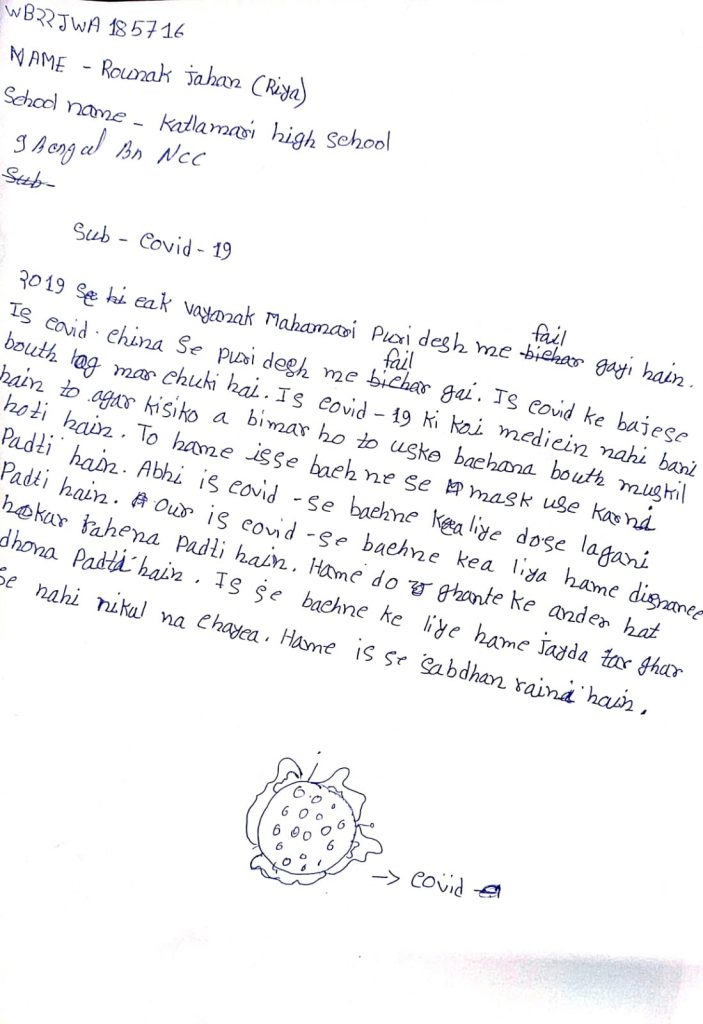 WB22JWA 185716
NAME - Rounak jahan (Riya)
School name - Katlamari high school
9 Bengal Bn NCC
Sub-
Sub - Covid - 19
2019 se hi eak vayanak Mahamari Puri desh me fail gayi hain.
Is covid. china se puri desh me fail gai. Is covid ke bajese
bouth log mar chuki hai. Is covid-19 ki koi medicin nahi bani
hain to agar kisiko a bimar ho to usko bachana bouth muskil
hoti hain. To hame isse bach ne se mask use karna
Padti hain. Abhi is covid-se bachne kea liye dose lagani
Padti hain. Our is covid-se bachne kea liya hame disnanee
hokur rahena padti hain. Hame do ghante ke ander hat
dhona padta hain. Is se bachne ke liye hame jayda tar ghar
se nahi nikul na chayea. Hame is se sabdhan raina hain.
-> covid